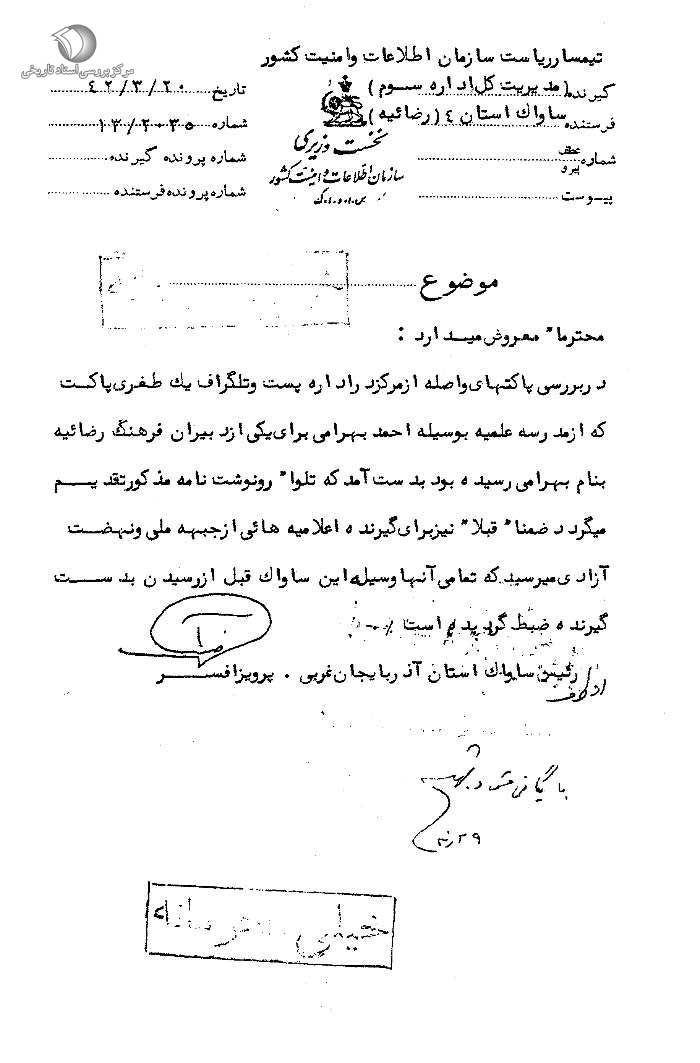 مرکز بررسی اسناد تاریخی
تیمسار ریاست سازمان اطلاعات وامنیت کشور
گیرنده (مدیریت کل اداره سوم)
تاریخ ۴۲/۳/۲۰
فرستنده ساواک استان ۴ (رضائیه)
شماره ۱۳/۲۰۳۵
نخست وزیری
سازمان اطلاعات و امنیت کشور
س.ا.و.ا.ک
شماره عطف پیرو
شماره پرونده گیرنده
پیوست
شماره پرونده فرستنده
موضوع
محترما" معروض میدارد :
در بررسی پاکتهای واصله از مرکز در اداره پست وتلگراف یک طغری پاکت
که از مدرسه علمیه بوسیله احمد بهرامی برای یکی از دبیران فرهنگ رضائیه
بنام بهرامی رسیده بود بدست آمد که تلوا" رونوشت نامه مذکور تقدیم
میگردد ضمنا" قبلا" نیز برای گیرنده اعلامیه هائی از جبهه ملی ونهضت
آزادی میرسید که تمامی آنها وسیله این ساواک قبل از رسیدن بدست
گیرنده ضبط گردیده است
رئیس ساواک استان آذربایجان غربی . پرویز افسر
از طرف
بایگانی شود
خیلی محرمانه